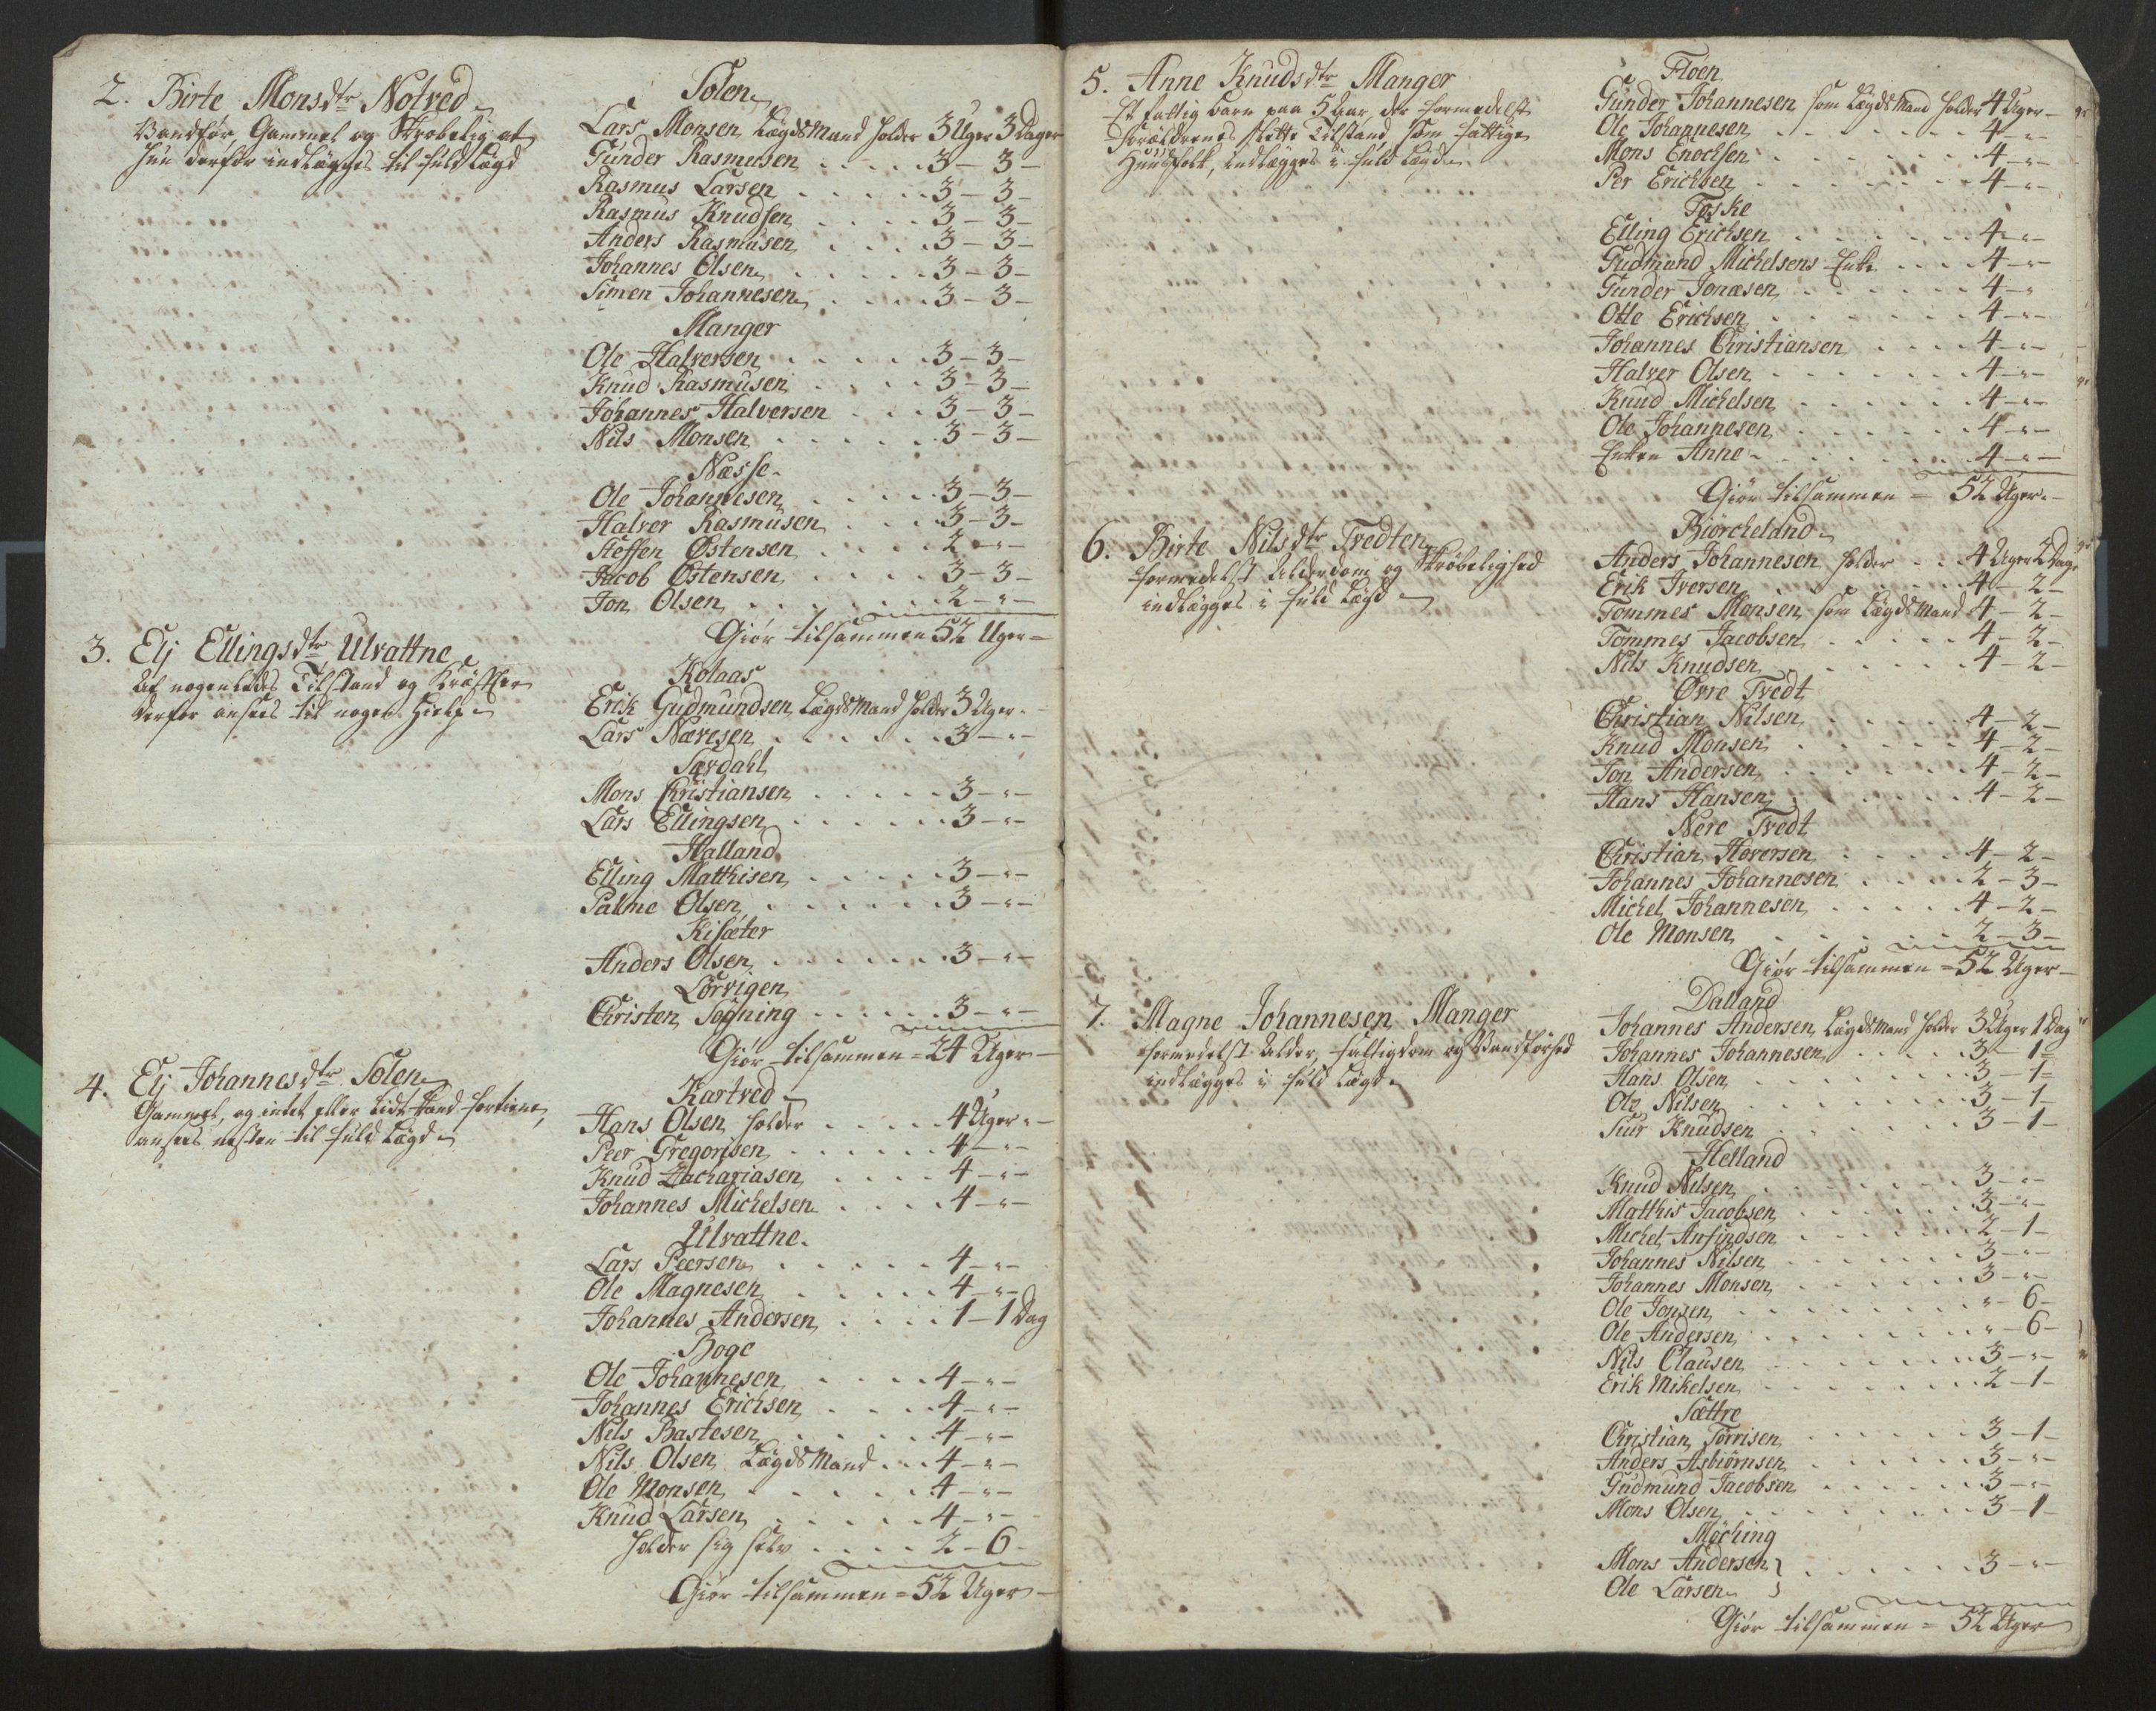 2. Birte Monsdtr Notved
Vandför, Gammel og Skrøbelig at
hun derfor indlægges til fuld Lægd
Solen
Lars Monsen Lægdsmand holder 3 Uger 3 Dager
Gunder Rasmusen . . . . 3 - 3 -
Rasmus Larsen . . . . . 3 - 3 -
Rasmus Knudsen . . . . 3 - 3 -
Anders Rasmusen . . . . 3 - 3 -
Johannes Olsen . . . . . 3 - 3 -
Simen Johannesen . . . . 3 - 3 -
Manger
Ole Halversen . . . . . 3 - 3 -
Knud Rasmusen . . . . 3 - 3 -
Johannes Halversen . . . 3 - 3 -
Nils Monsen . . . . . . 3 - 3 -
Næsse
Ole Johannesen . . . . 3 - 3 -
Halver Rasmusen . . . . 3 - 3 -
Steffen Østensen . . . . 2 - " -
Jacob Østensen . . . . 3 - 3 -
Jon Olsen . . . . . . 2 - " -
Giör tilsammen 52 Uger -
3. Elj Ellingsdtr Ulvattne
Af nogenledes Tilstand og Kræfter
derfor ansees til nogen Hielp
Kolaas
Erik Gudmundsen Lægdsmand holder 3 Uger -
Lars Nævesen . . . . . . 3 - " -
Særdahl
Mons Christiansen . . . . . 3 - " -
Lars Ellingsen . . . . . . 3 - " -
Halland
Elling Matthisen . . . . . 3 - " -
Palme Olsen . . . . . . 3 - " -
Kisæter
Anders Olsen . . . . . . 3 - " -
Lorvigen
Christen Sogning . . . . . 3 - " -
Giör tilsammen = 24 Uger -
4. Elj Johannesdtr Solen
Gammel, og intet eller lidt kand fortiene,
ansees næsten til fuld Lægd
Kartved
Hans Olsen holder . . . . . 4 Uger " -
Peer Gregorisen . . . . . . 4 - " -
Knud Zachariasen . . . . 4 - " -
Johannes Michelsen . . . . 4 - " -
Ulvattne
Lars Peersen . . . . . 4 - " -
Ole Magnesen . . . . . 4 - " -
Johannes Andersen . . . . 1 - 1 Dag
Boge
Ole Johannesen . . . . 4 - " -
Johannes Erichsen . . . . 4 - " -
Nils Bastesen . . . . . 4 - " -
Nils Olsen Lægdsmand . . . 4 - " -
Ole Monsen . . . . . . 4 - " -
Knud Larsen . . . . . 4 - " -
holder sig selv . . . . 2 - 6 -
Giör tilsammen = 52 Uger -
5. Anne Knudsdtr Manger
Et fattig Barn paa 5 Aar, der formedelst
Forældrenes slette Tilstand, som fattige
Huusfolk, indlægges i fuld Lægd
Floen
Gunder Johannesen som Lægdsmand holder 4 Uger -
Ole Johannesen . . . . . . . 4 - " -
Mons Enochsen . . . . . . . 4 - " -
Per Erichsen . . . . . . . 4 - " -
Toske
Elling Erichsen . . . . . . 4 - " -
Gudmund Michelsens Enke . . . 4 - " -
Gunder Jonæsen . . . . . . 4 - "
Otte Erichsen . . . . . . 4 - " -
Johannes Christiansen . . . . 4 - " -
Halver Olsen . . . . . . . 4 - " -
Knud Michelsen . . . . . . 4 - " -
Ole Johannesen . . . . . . 4 - " -
Enken Anne . . . . . . . 4 - " -
Giör tilsammen = 52 Uger -
6. Birte Nilsdtr Tredten
formedelst Alderdom og Skrøbelighed
indlægges i fuld Lægd
Biörcheland
Anders Johannesen holder . . 4 Uger 2 Dage
Erik Iversen . . . . . . . 4 - 2 -
Tommes Monsen som Lægdsmand 4 - 2 -
Tommes Jacobsen . . . . . 4 - 2 -
Nils Knudsen . . . . . . . 4 - 2 -
Øvre Tvedt
Christian Nilsen . . . . . 4 - 2 -
Knud Monsen . . . . . . 4 - 2 -
Jon Andersen . . . . . . 4 - 2 -
Hans Hansen . . . . . . 4 - 2 -
Nere Tvedt
Christian Haversen . . . . 4 - 2 -
Johannes Johannesen . . . . 2 - 3 -
Michel Johannesen . . . . . 4 - 2 -
Ole Monsen . . . . . . . 2 - 3 -
Giör tilsammen = 52 Uger -
7. Magne Johannesen Manger
formedelst Alder, Fattigdom og Vandförhed
indlægges i fuld Lægd
Dalland
Johannes Andersen Lægdsmand holder 3 Uger 1 Dag
Johannes Johannesen . . . . 3 - 1 -
Hans Olsen . . . . . . . 3 - 1 -
Ole Nilsen . . . . . . . 3 - 1 -
Siur Knudsen . . . . . . 3 - 1 -
Helland
Knud Nilsen . . . . . . . 3 - " -
Matthis Jacobsen . . . . . . 3 - " -
Michel Ansindsen . . . . . . 2 - 1 -
Johannes Nilsen . . . . . . 3 - " -
Johannes Monsen . . . . . . 3 - " -
Ole Jonsen . . . . . . . " - 6 -
Ole Andersen . . . . . . . " - 6 -
Nils Clausen . . . . . . . 3 - " -
Erik Mikelsen . . . . . . . 2 - 1 -
Sættre
Christian Torrisen . . . . . . 3 - 1 -
Anders Asbiornsen . . . . . . 3 - " -
Gudmund Jacobsen . . . . . . 3 - " -
Mons Olsen . . . . . . . 3 - 1 -
Möching
Mons Andersen } . . . . . 3 - " -
Ole Larsen }
Giör tilsammen = 52 Uger